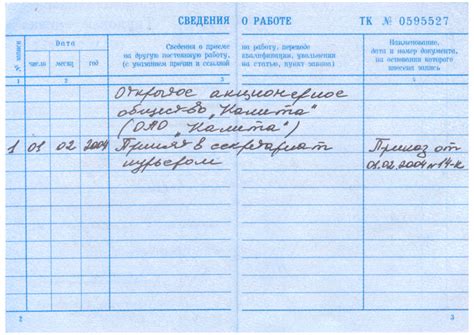 СВЕДЕНИЯ О РАБОТЕ ТК № 0595527
№ записи
Дата
число месяц год
Сведения о приеме на работу, переводе
на другую постоянную работу, квалификации, увольнении
(с указанием причин и ссылкой на статью, пункт закона)
Наименование,
дата и номер документа,
на основании которого
внесена запись
1 2 3 4
Открытое акционерное
общество „Калита"
(ОАО „Калита")
1 01 02 2004 Принят в секретариат Приказ от
курьером 01.02.2004 №14-к
2 3